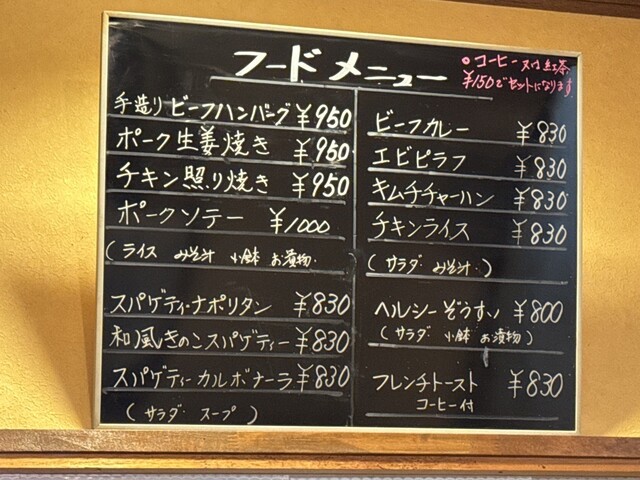 フードメニュー
•コーヒー又は紅茶
¥150でセットになります
手造りビーフハンバーグ ¥950
ポーク生姜焼き ¥950
チキン照り焼き ¥950
ポークソテー ¥1000
(ライス みそ汁 小鉢 お漬物
スパゲティーナポリタン ¥830
和風きのこスパゲティー ¥830
スパゲティーカルボナーラ ¥830
(サラダ スープ)
ビーフカレー ¥830
エビピラフ ¥830
キムチチャーハン ¥830
チキンライス ¥830
(サラダ みそ汁)
ヘルシーぞうすい ¥800
(サラダ 小鉢 お漬物)
フレンチトースト ¥830
コーヒー付